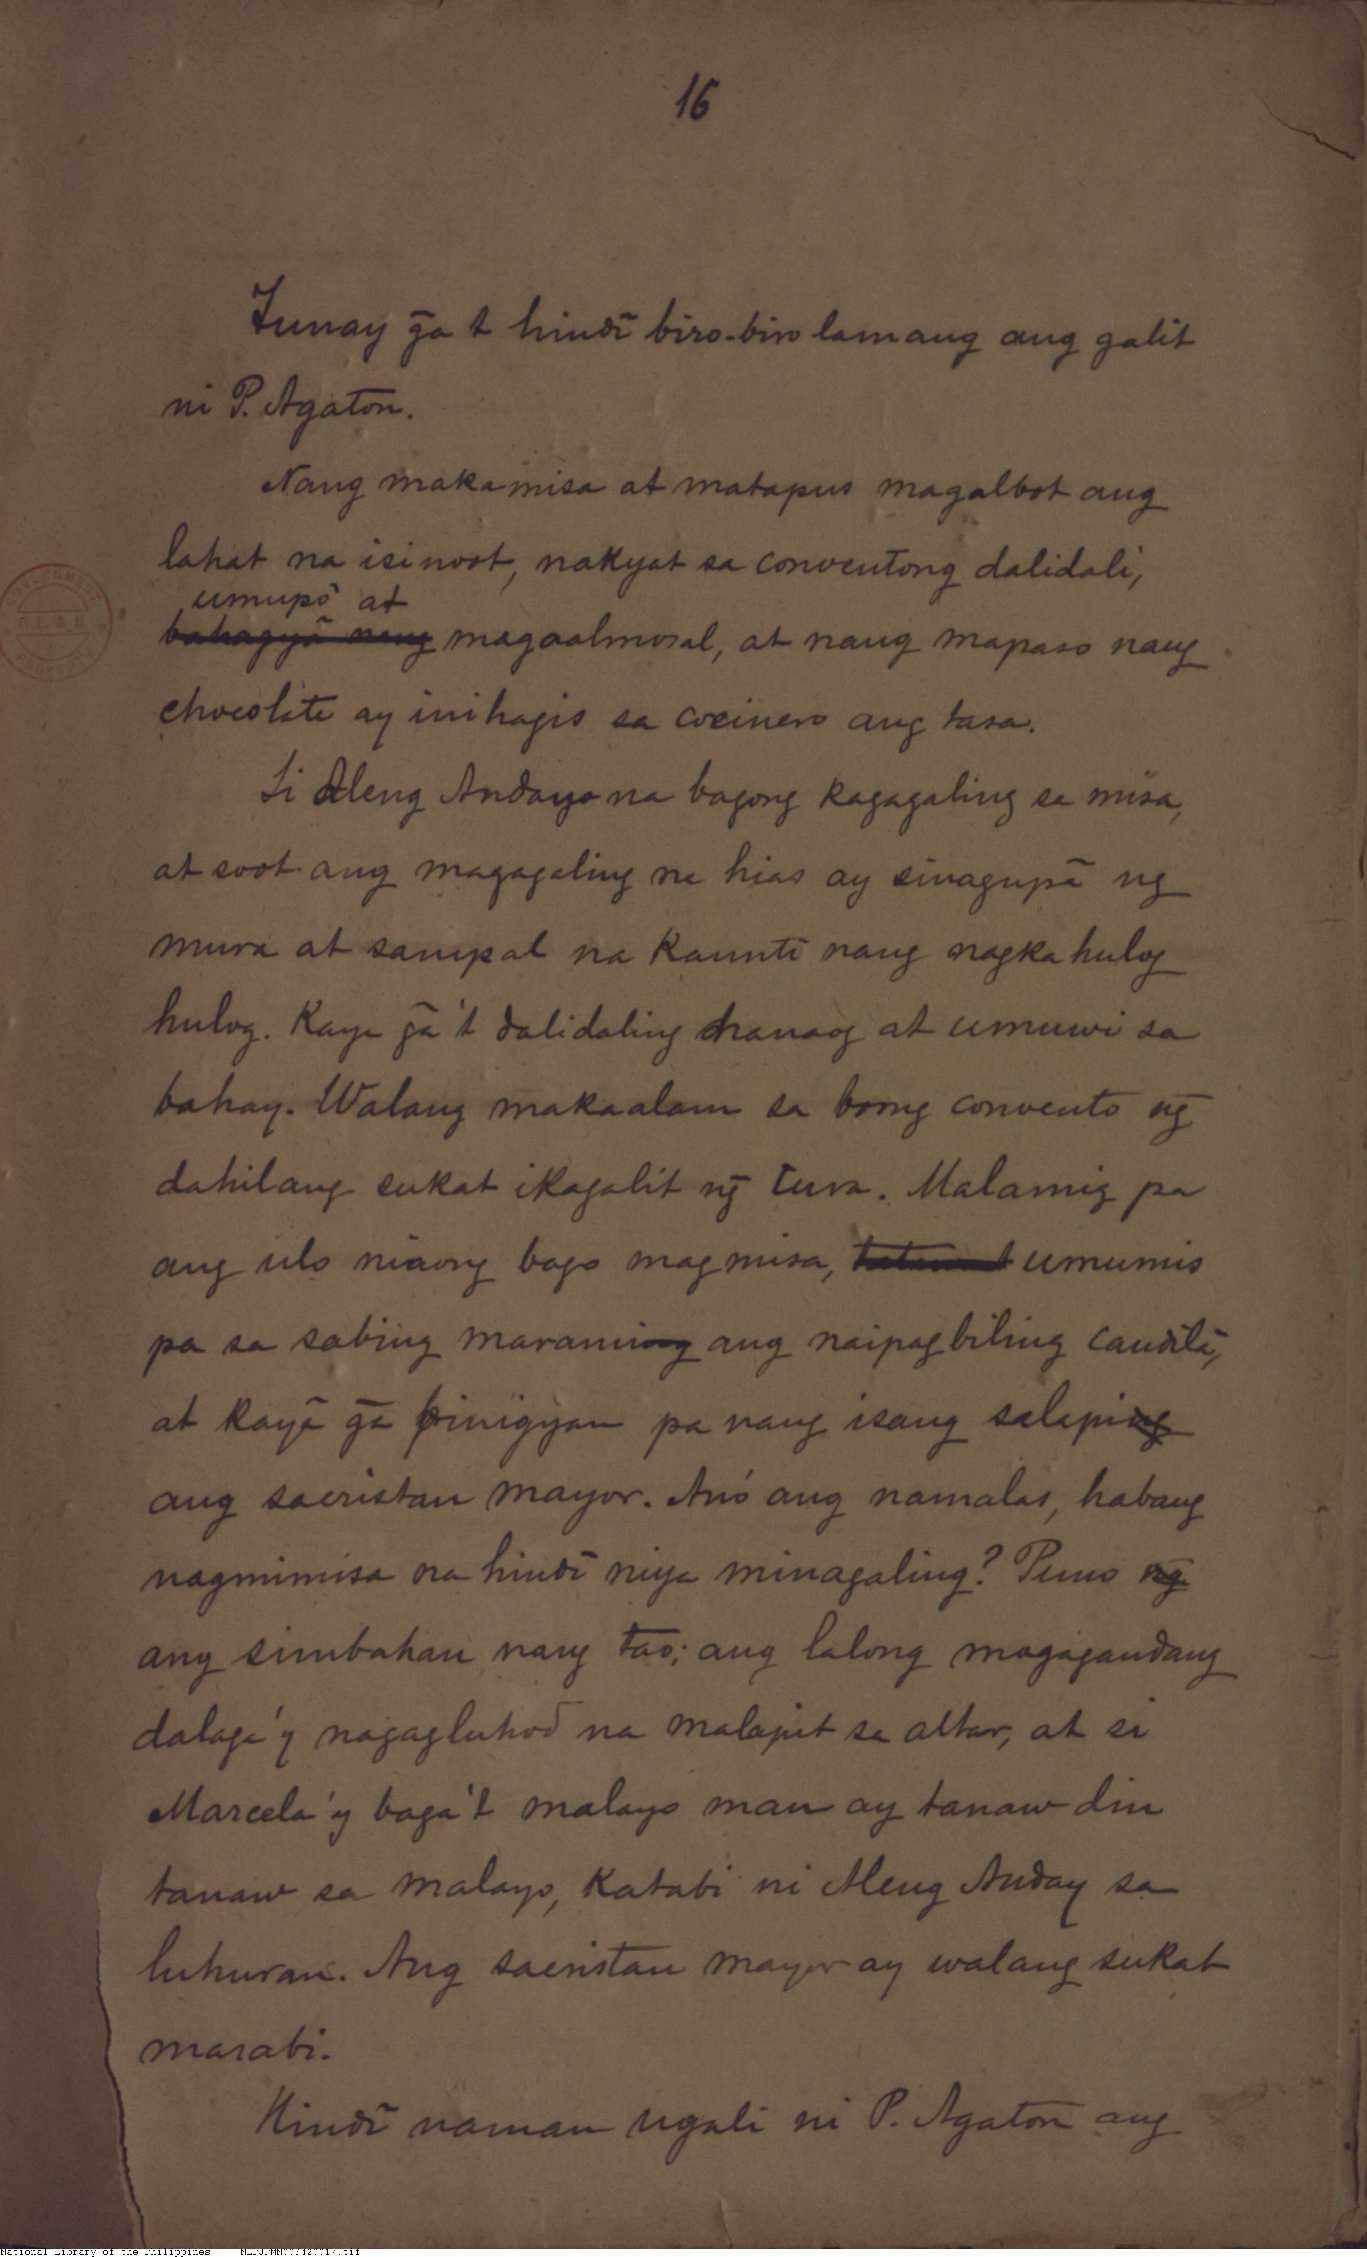 16
Tunay g̃a t hindī biro-biro lamang ang galit
ni P. Agaton.
Nang makamisa at matapus magalbot ang
lahat na isinoot, nakyat sa conventong dalidali,
umupō at
bahagyā nang magaalmosal, at nang mapaso nang
chocolate ay inihagis sa cocinero ang tasa.
Si Aleng Andayo na bagong kagagaling sa misa,
at soot ang magagaling na hias ay sinagupā ng
mura at sampal na kauntī nang nagkahulog
hulog. Kaya g̃ā't dalidaling nanaog at umuwi sa
bahay. Walang makaalam sa boong convento ng̃
dahilang sukat ikagalit ng̃ Cura. Malamig pa
ang ulo niaong bago magmisa, umumis
pa sa sabing maraming ang naipagbiling candilā,
at kayā g̃a binigyan pa nang isang salaping
ang sacristan mayor. Anó ang namalas, habang
nagmimisa na hindī niya minagaling? Puno ng̃
ang simbahan nang tao; ang lalong magagandang
dalaga'y nagagluhod na malapit sa altar, at si
Marcela'y baga't malayo man ay tanaw din
tanaw sa malayo, katabi ni Aleng Anday sa
luhuran. Ang sacristan mayor ay walang sukat
masabi.
Hindī naman ugali ni P. Agaton ang
National Library of the Philippines